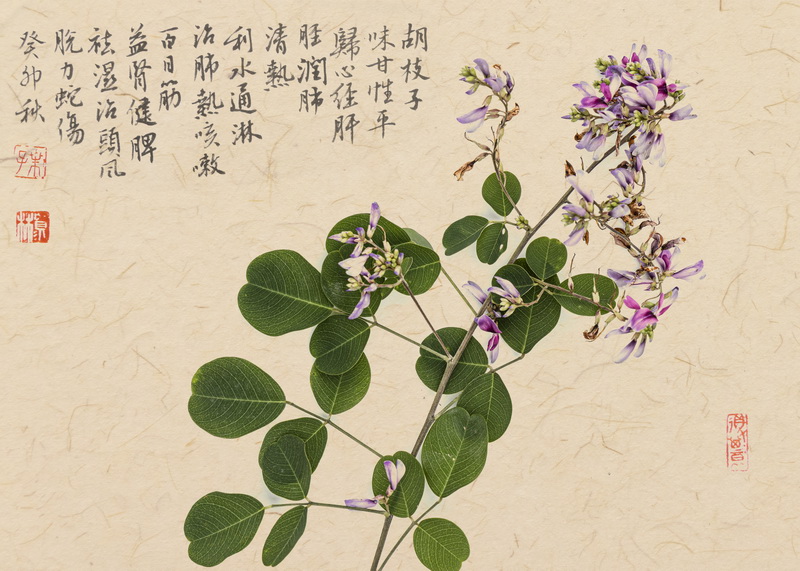 胡枝子
味甘性平
歸心經肝
胫潤肺
清熱
利水通淋
治肺熱咳嗽
百日筋
益腎健脾
祛濕治頭風
脫力蛇傷
癸卯秋